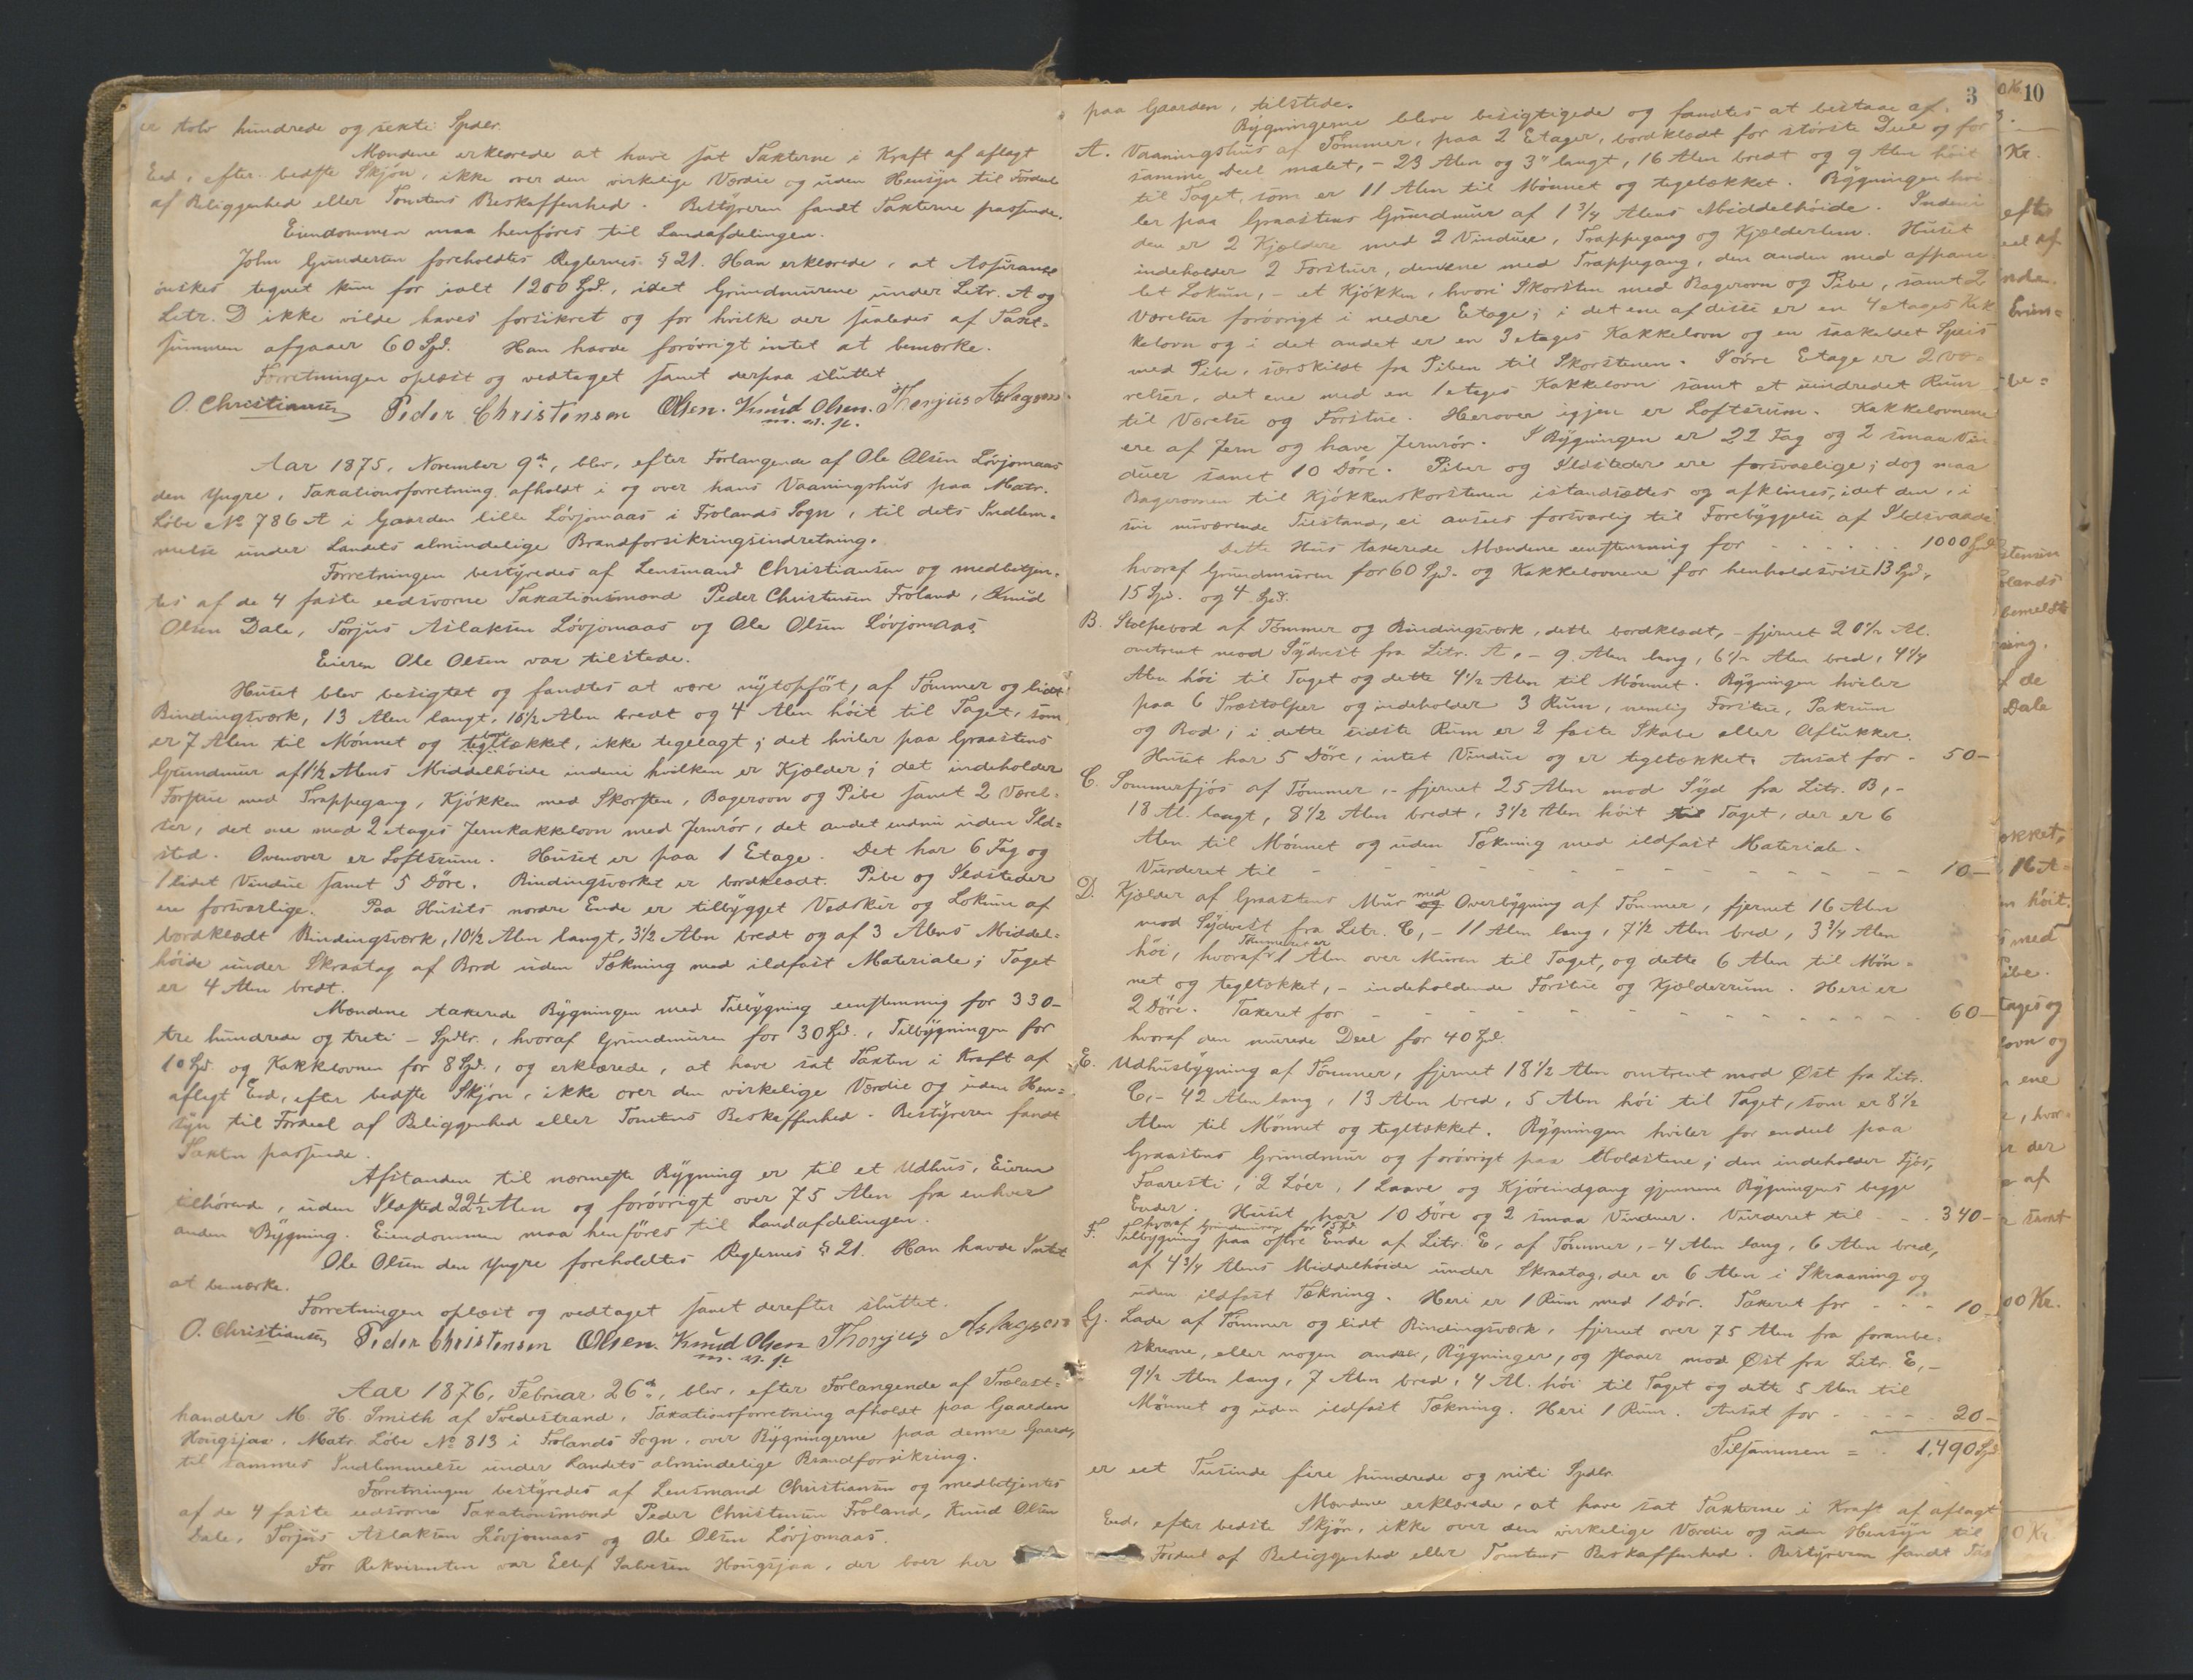 er tolv hundrede og sexti Spdlr.
Mændene erklærede at have sat Taxterne i Kraft af aflagt
Eed, efter bedste Skjøn, ikke over den virkelige Værdie og uden Hensyn til Fordeel
af Beliggenhed eller Tomtens Beskaffenhed. Bestyreren fandt Taxterne passende.
Eiendommen maa henføres til Landafdelingen.
John Gundersen foreholdtes Reglernes § 21. Han erklærede, at Assurance
ønskes tegnet kun for ialt 1200 Spd., idet Grundmurene under Litr. A og
Litr. D ikke vilde haves forsikret og for hvilke der saaledes af Taxt-
summen afgaaer 60 Spd. Han havde forøvrigt intet at bemærke.
Forretningen oplæst og vedtaget samt derpaa sluttet
O. Christiansen Peder Christensen Olsen. Knud Olsen. Thorjus Aslagsen
m. p. p.
Aar 1875, November 9de, blev, efter Forlangende af Ole Olsen Løvjomaas
den yngre, Taxationsforretning afholdt i og over hans Vaaningshus paa Matr.
Løbe No 786 A i Gaarden lille Løvjomaas i Frolands Sogn, til dets Indlem-
melse under Landets almindelige Brandforsikringsindretning.
Forretningen bestyredes af Lensmand Christiansen og medbetjen-
tes af de 4 faste eedsvorne Taxationsmænd Peder Christensen Froland, Knud
Olsen Dale, Torjus Aslaksen Løvjomaas og Ole Olsen Løvjomaas
Eieren Ole Olsen var tilstede.
Huset blev besigtet og fandtes at være nytopført, af Tømmer og lidt
Bindingsværk, 13 Alen langt, 10½ Alen bredt og 4 Alen høit til Taget, som
er 7 Alen til Mønnet og tegltækket, ikke tegelagt; det hviler paa Graastens
Grundmur af 1½ Alens Middelhøide indeni hvilken er Kjælder; det indeholder
Forstue med Trappegang, Kjøkken med Skorsten, Bagerovn og Pibe samt 2 Værel-
ser, det ene med 2 etages Jernkakkelovn med Jernrør, det andet endnu uden Ild-
sted. Ovenover er Loftsrum. Huset er paa 1 Etage. Det har 6 Fag og
1 lidet Vindue samt 5 Døre. Bindingsværket er bordklædt. Pibe og Ildsteder
ere forsvarlige. Paa Husets nordre Ende er tilbygget Vedskur og Lokum af
bordklædt Bindingsværk, 10½ Alen langt, 3½ Alen bredt og af 3 Alens Middel-
høide under Skraatag af Bord uden Tækning med ildfast Materiale; Taget
er 4 Alen bredt.
Mændene taxerede Bygningen med Tilbygning eenstemmig for 330-
tre hundrede og treti - Spdlr., hvoraf Grundmuren for 30 Spd., Tilbygningen for
10 Spd. og Kakkelovnen for 8 Spd., og erklærede, at have sat Taxten i Kraft af
aflagt Eed, efter bedste Skjøn, ikke over den virkelige Værdie og uden Hen-
syn til Fordeel af Beliggenhed eller Tomtens Beskaffenhed. Bestyreren fandt
Taxten passende.
Afstanden til nærmeste Bygning er til et Udhus, Eieren
tilhørende, uden Ildsted 22½ Alen og forøvrigt over 75 Alen fra enhver
anden Bygning. Eiendommen maa henføres til Landafdelingen.
Ole Olsen den yngre foreholdtes Reglernes § 21. Han havde Intet
at bemærke.
Forretningen oplæst og vedtaget samt derefter sluttet.
O. Christiansen Peder Christensen Olsen. Knud Olsen Thorjus Aslagsen
m. p. p.
Aar 1876, Februar 26de, blev, efter Forlangende af Trælast-
handler M. H. Smith af Tvedestrand, Taxationsforretning afholdt paa Gaarden
Hougsjaa, Matr. Løbe No 813 i Frolands Sogn, over Bygningerne paa denne Gaard,
til sammes Indlemmelse under Landets almindelige Brandforsikring.
Forretningen bestyredes af Lensmand Christiansen og medbetjentes
af de 4 faste eedsvorne Taxationsmænd Peder Christensen Froland, Knud Olsen
Dale, Torjus Aslaksen Løvjomaas og Ole Olsen Løvjomaas.
For Rekvirenten var Ellef Salvesen Hougsjaa, der boer her
3
10
paa Gaarden, tilstede.
Bygningerne bleve besigtigede og fandtes at bestaae af:
A. Vaaningshus af Tømmer, paa 2 Etager, bordklædt for største Deel og for
samme Deel malet, - 23 Alen og 3" langt, 16 Alen bredt og 9 Alen høit
til Taget, som er 11 Alen til Mønnet og tegltækket. Bygningen hvi-
ler paa Graastens Grundmur af 1¾ Alens Middelhøide. Indeni
den er 2 Kjældere med 2 Vinduer, Trappegang og Kjælderlem. Huset
indeholder 2 Forstuer, den ene med Trappegang, den anden med afpane-
let Lokum, - et Kjøkken, hvori Skorsten med Bagerovn og Pibe, samt 2
Værelser forøvrigt i nedre Etage; i det ene af disse er en 4 etages Kak-
kelovn og i det andet er en 3 etages Kakkelovn og en saakaldet Speis
med Pibe, særskildt fra Piben til Skorstenen. I øvre Etage er 2 Væ-
relser, det ene med en 1 etages Kakkelovn samt et uindredet Rum
til Værelse og Forstue. Herover igjen er Loftsrum. Kakkelovnene
ere af Jern og have Jernrør. I Bygningen er 22 Fag og 2 smaa Vin-
duer samt 10 Døre. Piber og Ildsteder ere forsvarlige; dog maa
Bagerovnen til Kjøkkenskorstenen istandsættes og afklines, idet den, i
sin nuværende Tilstand, ei ansees forsvarlig til Forebyggelse af Ildsvaade
Dette Hus taxerede Mændene eenstemmig for - - - - - 1000 Spd.
hvoraf Grundmuren for 60 Spd. og Kakkelovnene for henholdsvise 13 Spd.,
15 Spd. og 4 Spd.
B. Stolpebod af Tømmer og Bindingsværk, dette bordklædt, - fjernet 20½ Al.
omtrent mod Sydvest fra Litr. A, - 9 Alen lang, 6½ Alen bred, 4¼
Alen høi til Taget og dette 4½ Alen til Mønnet. Bygningen hviler
paa 6 Træstolper og indeholder 3 Rum, nemlig Forstue, Pakrum
og Bod; i dette sidste Rum er 2 faste Skabe eller Aflukker.
Huset har 5 Døre, intet Vindue og er tegltækket. Ansat for - 50 -
C. Sommerfjøs af Tømmer, - fjernet 25 Alen mod Syd fra Litr. B, -
13 Al. langt, 8½ Alen bredt, 3½ Alen høit til Taget, der er 6
Alen til Mønnet og uden Tækning med ildfast Materiale.
Vurderet til - - - - - - - - - - - 10 -
D. Kjælder af Graastens Mur og med Overbygning af Tømmer, fjernet 16 Alen
mod Sydvest fra Litr. C, - 11 Alen lang, 7½ Alen bred, 3¾ Alen
høi, hvoraf Tømmeret er 1 Alen over Muren til Taget, og dette 6 Alen til Møn-
net og tegltækket, - indeholdende Forstue og Kjælderrum. Heri er
2 Døre. Taxeret for - - - - - - - - - - - 60 -
hvoraf den murede Deel for 40 Spd.
E. Udhusbygning af Tømmer, fjernet 18½ Alen omtrent mod Øst fra Litr.
C, - 42 Alen lang, 13 Alen bred, 5 Alen høi til Taget, som er 8½
Alen til Mønnet og tegltækket. Bygningen hviler for endeel paa
Graastens Grundmur og forøvrigt paa Holdstene; den indeholder Fjøs,
Faaresti, 2 Løer, 1 Laave og Kjøreindgang gjennem Bygningens begge
Ender. Huset har 10 Døre og 2 smaa Vinduer. Vurderet til - - - 340 -
hvoraf Grundmuren for 15 Spd.
F. Tilbygning paa østre Ende af Litr. E, af Tømmer, - 4 Alen lang, 6 Alen bred,
af 4¾ Alens Middelhøide under Skraatag, der er 6 Alen i Skraaning og
uden ildfast Tækning. Heri er 1 Rum med 1 Dør. Taxeret for - - - 10 -
G. Lade af Tømmer og lidt Bindingsværk, fjernet over 75 Alen fra foranbe-
skrevne, eller nogen anden, Bygninger, og staaer mod Øst fra Litr. E, -
9½ Alen lang, 7 Alen bred, 4 Al. høi til Taget og dette 5 Alen til
Mønnet og uden ildfast Tækning. Heri 1 Rum. Ansat for - - - - 20 -
Tilsammen = - 1,490 Spd.
er eet Tusinde fire hundrede og niti Spdlr.
Mændene erklærede, at have sat Taxterne i Kraft af aflagt
Eed, efter bedste Skjøn, ikke over den virkelige Værdie og uden Hensyn til
Fordeel af Beliggenhed eller Tomtens Beskaffenhed. Bestyreren fandt Tax